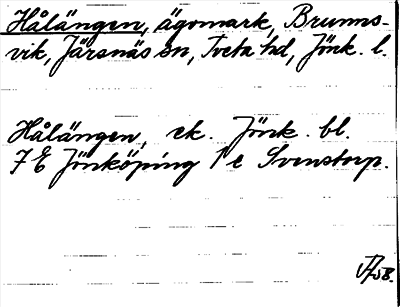 Hålängen, ägomark, Brunns-
vik, Järsnäs sn, Tveta hd, Jönk. l.
Hålängen, ek. Jönk. bl.
7 E Jönköping 1 e Svenstorp.